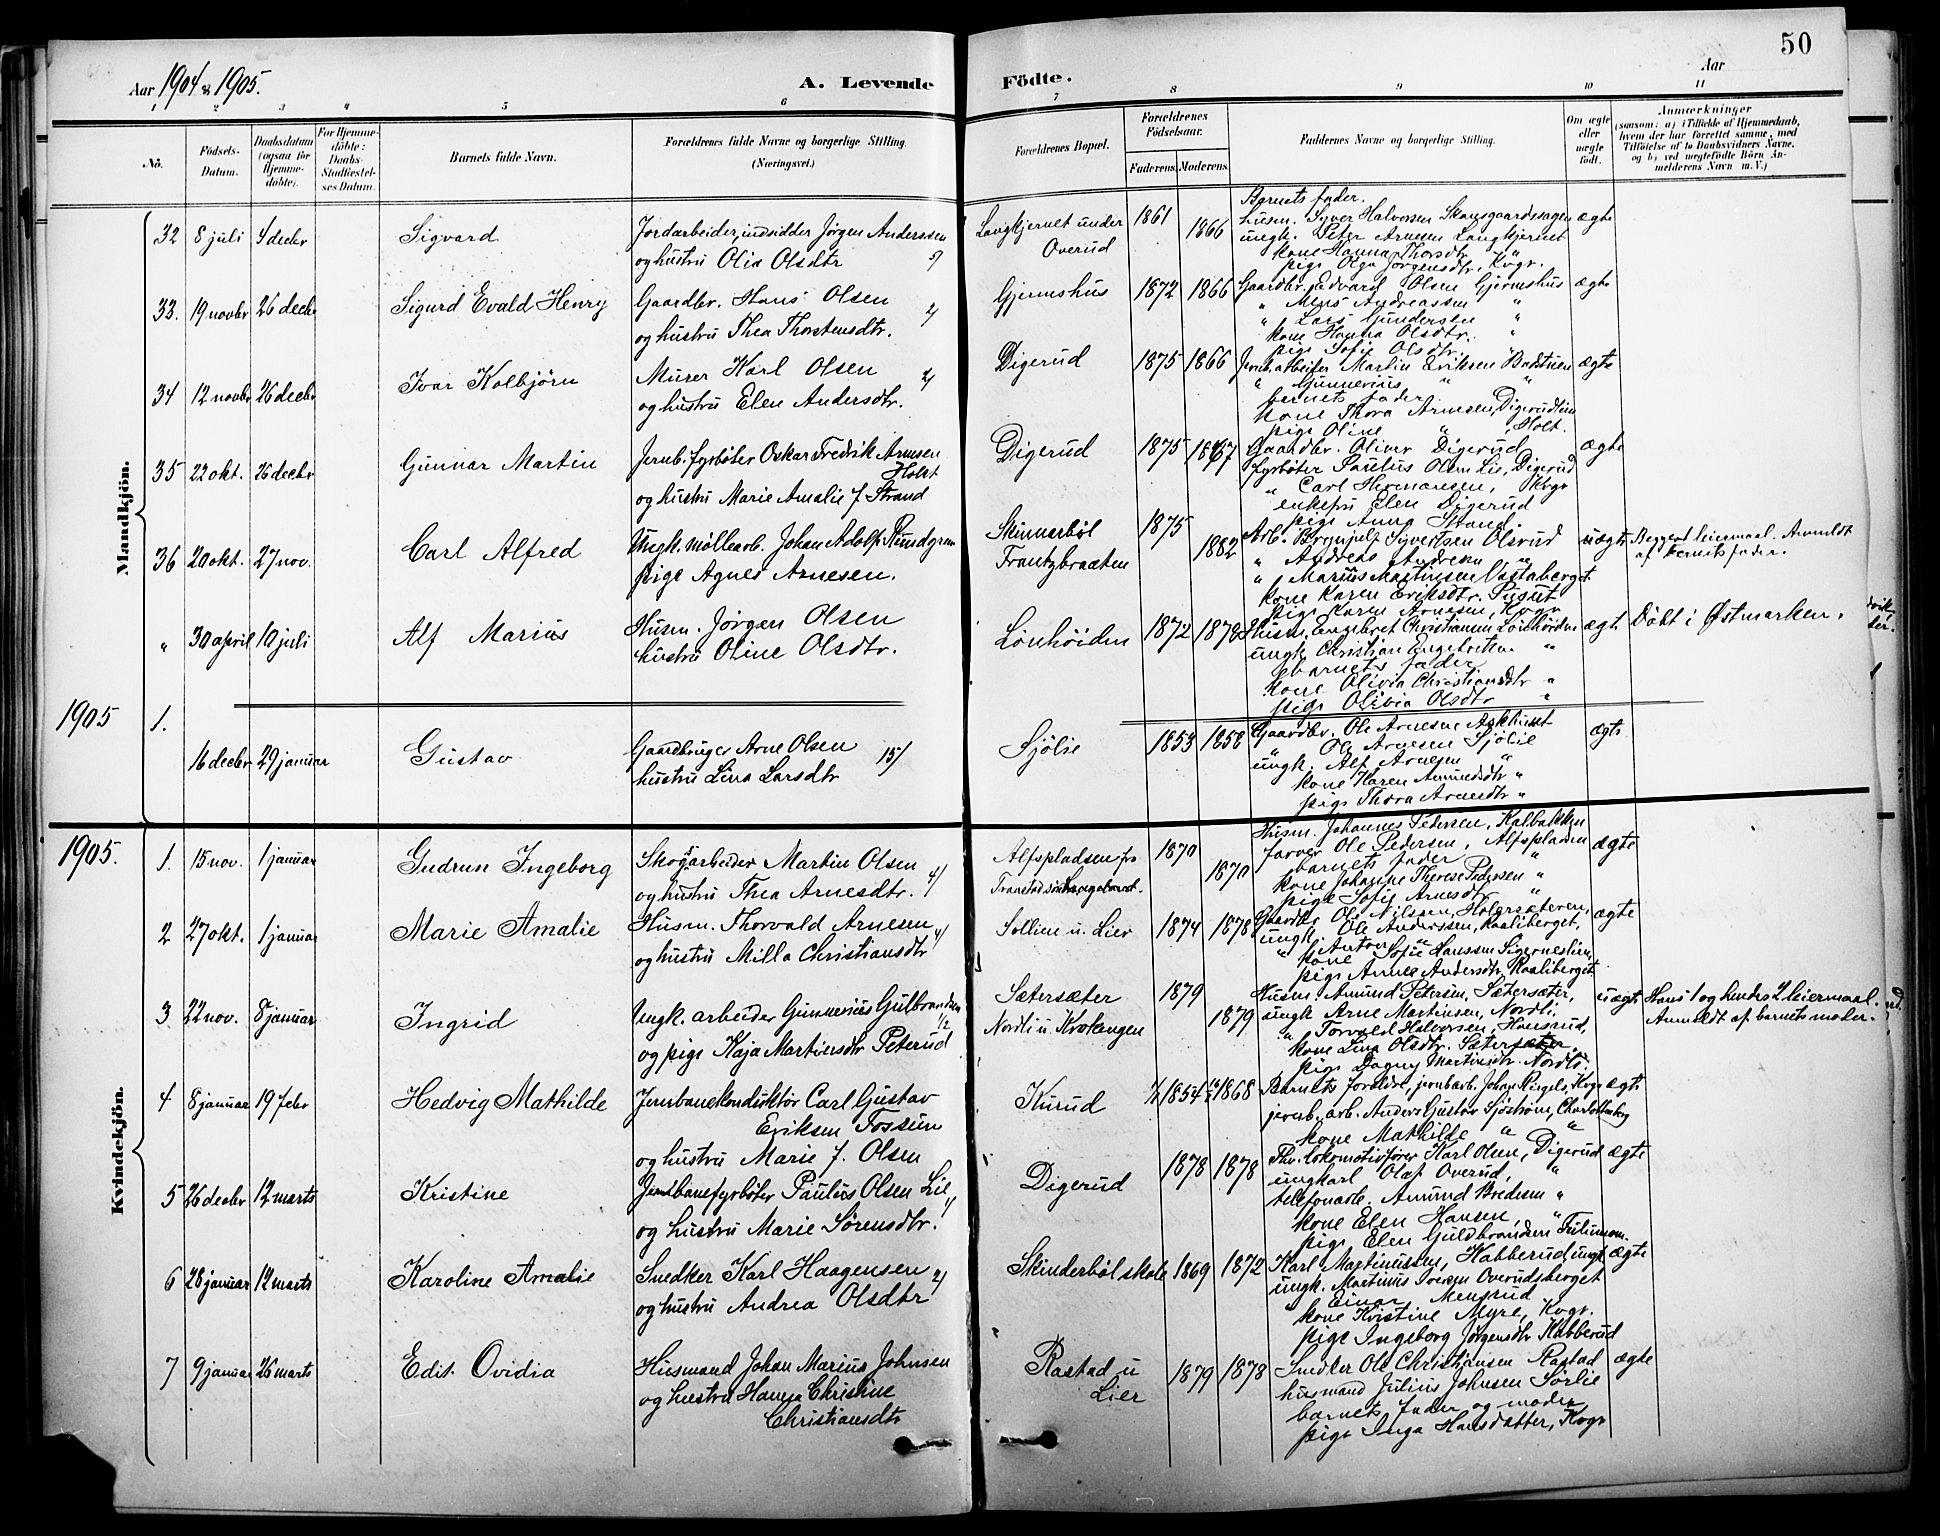 50
Aar 1904 & 1905.
A. Levende Födte.
Aar
1 2 3 4 5 6 7 8 9 10 11
No.
Födsels-Datum.
Daabsdatum (ogsaa for Hjemmedöbte).
For Hjemmedöbte: Daabs-Stadfæstelses Datum.
Barnets fulde Navn.
Forældrenes fulde Navne og borgerlige Stilling. (Næringsvei.)
Forældrenes Bopæl.
Forældrenes Födselsaar.
Faderens Moderens
Faddernes Navne og borgerlige Stilling.
Om ægte eller uægte födt.
Anmærkninger
(saasom: a) i Tilfælde af Hjemmedaab, hvem der har forrettet samme, med Tilföielse af to Daabsvidners Navne, og b) ved uægtefödte Börn Anmelderens Navn m. V.)
Mandkjön.
32 8 juli 4 decbr Sigvard
Jordarbeider, indsidder Jörgen Anderssen
og hustru Olia Olsdtr
Langkjernet under
Overud
1861 1866
Barnets fader.
husm. Syver Halvorsen Skansgaardssagen
ungk. Peter Arnesen Langkjernet
kone Hanna Thorsdtr "
pige Olga Jörgensdtr, Kvgr.
ægte
33. 19 novbr 26 decbr Sigurd Evald Henry
Gaardbr. Hans Olsen
og hustru Thea Thorstensdtr.
Gjermshus 1872 1866
Gaardbr. Edvard Olsen Gjermshus
" Mens Andreassen "
" Lars Gundersen "
kone Hanna Olsdtr. "
pige Sofie Olsdtr. "
ægte
34 12 novbr 26 decbr Ivar Kolbjörn
Murer Karl Olsen
og hustru Elen Andersdtr.
Digerud 1875 1866
Jernb. arbeider Martin Eriksen
" Gunnerius " "
barnets fader
kone Thora Arnesen, Digerudlien
pige Oline " , Holt.
ægte
35 22 okt. 26 decbr Gunnar Martin
Jernb. fyrböter Oskar Fredrik Arnesen
Holt
og hustru Marie Amalie f. Strand
Digerud 1875 1867
Gaardbr. Oliver Digerud
fyrböter Paulus Olsen Lie, Digerud
" Carl Hermansen, Kvgr
enkefru Elen Digerud
pige Anna Strand
ægte
36 20 okt. 27 nov. Carl Alfred
Ungk. möllearb. Johan Adolf Rundgren
pige Agnes Arnesen.
Skinnarböl
Frantzbraaten
1875 1882
Arb. Brynjulf Syvertsen Olsrud
" Andreas Andresen "
" Marius Martinsen Vestaberget
kone Karen Eriksdtr. Pusut
pige Karen Arnesen, Kvgr
uægte
Begges 1 leiermaal. Anmeldt
af barnets fader.
" 30 april 10 juli Alf Marius
Husm. Jörgen Olsen
hustru Oline Olsdtr.
Lönhöiden 1872 1878
Husm. Engebret Christiansen Lönhöiden
ungk Christian Engebretsen "
barnets fader
kone Olivia Christiansdtr "
pige Olivia Olsdtr "
ægte
Döbt i Østmarken.
1905 1.
16 decbr 29 januar Gustav
Gaardbruger Arne Olsen 15/
hustru Lina Larsdtr
Sjölie 1853 1858
Gaardbr. Ole Arnesen Askhuset
" Ole Arnesen Sjölie
ungk. Alf Arnesen "
kone Karen Amundsdtr "
pige Thora Arnesdtr "
ægte
Kvindekjön.
1905. 1. 15 nov. 1 januar Gudrun Ingeborg
Skogsarbeider Martin Olsen
og hustru Thea Arnesdtr. 4/
Alfspladsen fra
1870 1870
Husm. Johannes Pedersen, Kalbakken
farver Ole Pedersen, Alfspladsen
barnets fader "
kone Johanne Therese Pedersen "
pige Sofie Arnesdtr "
ægte
2 27 okt. 1 januar Marie Amalie
Husm. Thorvald Arnesen
og hustru Milla Christiansdtr
Sollien u. Lier 1874 1878
Gaardbr Ole Nilssen, Holgersæteren,
ungk. Ole Anderssen, Kaaliberget,
" Anton " "
kone Sofie Hanssen Sigerneslien
pige Annee Andersdtr Kaaliberget
ægte
3 22 nov. 8 januar Ingrid
Ungk. arbeider Gunnerius Gulbrandsen 1/2
og pige Kaja Martinsdtr Peterud
Sætersæter
Nordli u. Krokengen
1879 1879
Husm. Amund Petersen, Sætersæter,
ungk Arne Martinsen, Nordli,
" Torvald Halvorsen, Hansrud,
kone Lina Olsdtr. Sætersæter
pige Dagny Martinsdtr. Nordli
uægte
Hans 1 og hendes 2 leiermaal.
Anmeldt af barnets moder.
4 8 januar 19 febr Hedvig Mathilde
Jernbanekonduktör Carl Gustav
Eriksen Fossum
og hustru Marie f. Olsen
Kurud 1854 1868
Barnets foreldre, jernbarb. Johan Kirgel, Kvgr
jernb. arb. Anders Gustav Sjöström, Charlottenberg
kone Mathilde " "
ægte
5 26 decbr 12 marts Kristine
Jernbanefyrböter Paulus Olsen Lie
og hustru Marie Sörensdtr.
Digerud 1878 1878
Thv. lokomotivförer Karl Olsen, Digerud
ungkarl Olaf Overud, "
telefonarb. Amund Bredesen "
kone Elen Hansen, "
pige Elen Guldbrandsen
ægte
6 28 januar 12 marts Karoline Amalie
Snedker Karl Haagensen 2/
og hustru Andrea Olsdtr
Skinderböl skole 1869 1872
Karl Martinussen, Kabberud ungk.
ungk. Martinus Iversen Overudsberget
" Einar Mengrud
kone Kristine Myre, Kvgr.
pige Ingeborg Jörgensdtr Kabberud
ægte
7 9 januar 26 marts Edit Ovidia
Husmand Johan Marius Johnsen
og hustru Hanna Christine
Christiansdtr
Rastad u
Lier
1879 1878
Snedker Ole Christiansen Rastad
husmand Julius Johnsen Sörlie
barnets fader og moder
pige Inga Hansdatter, Kvgr
ægte